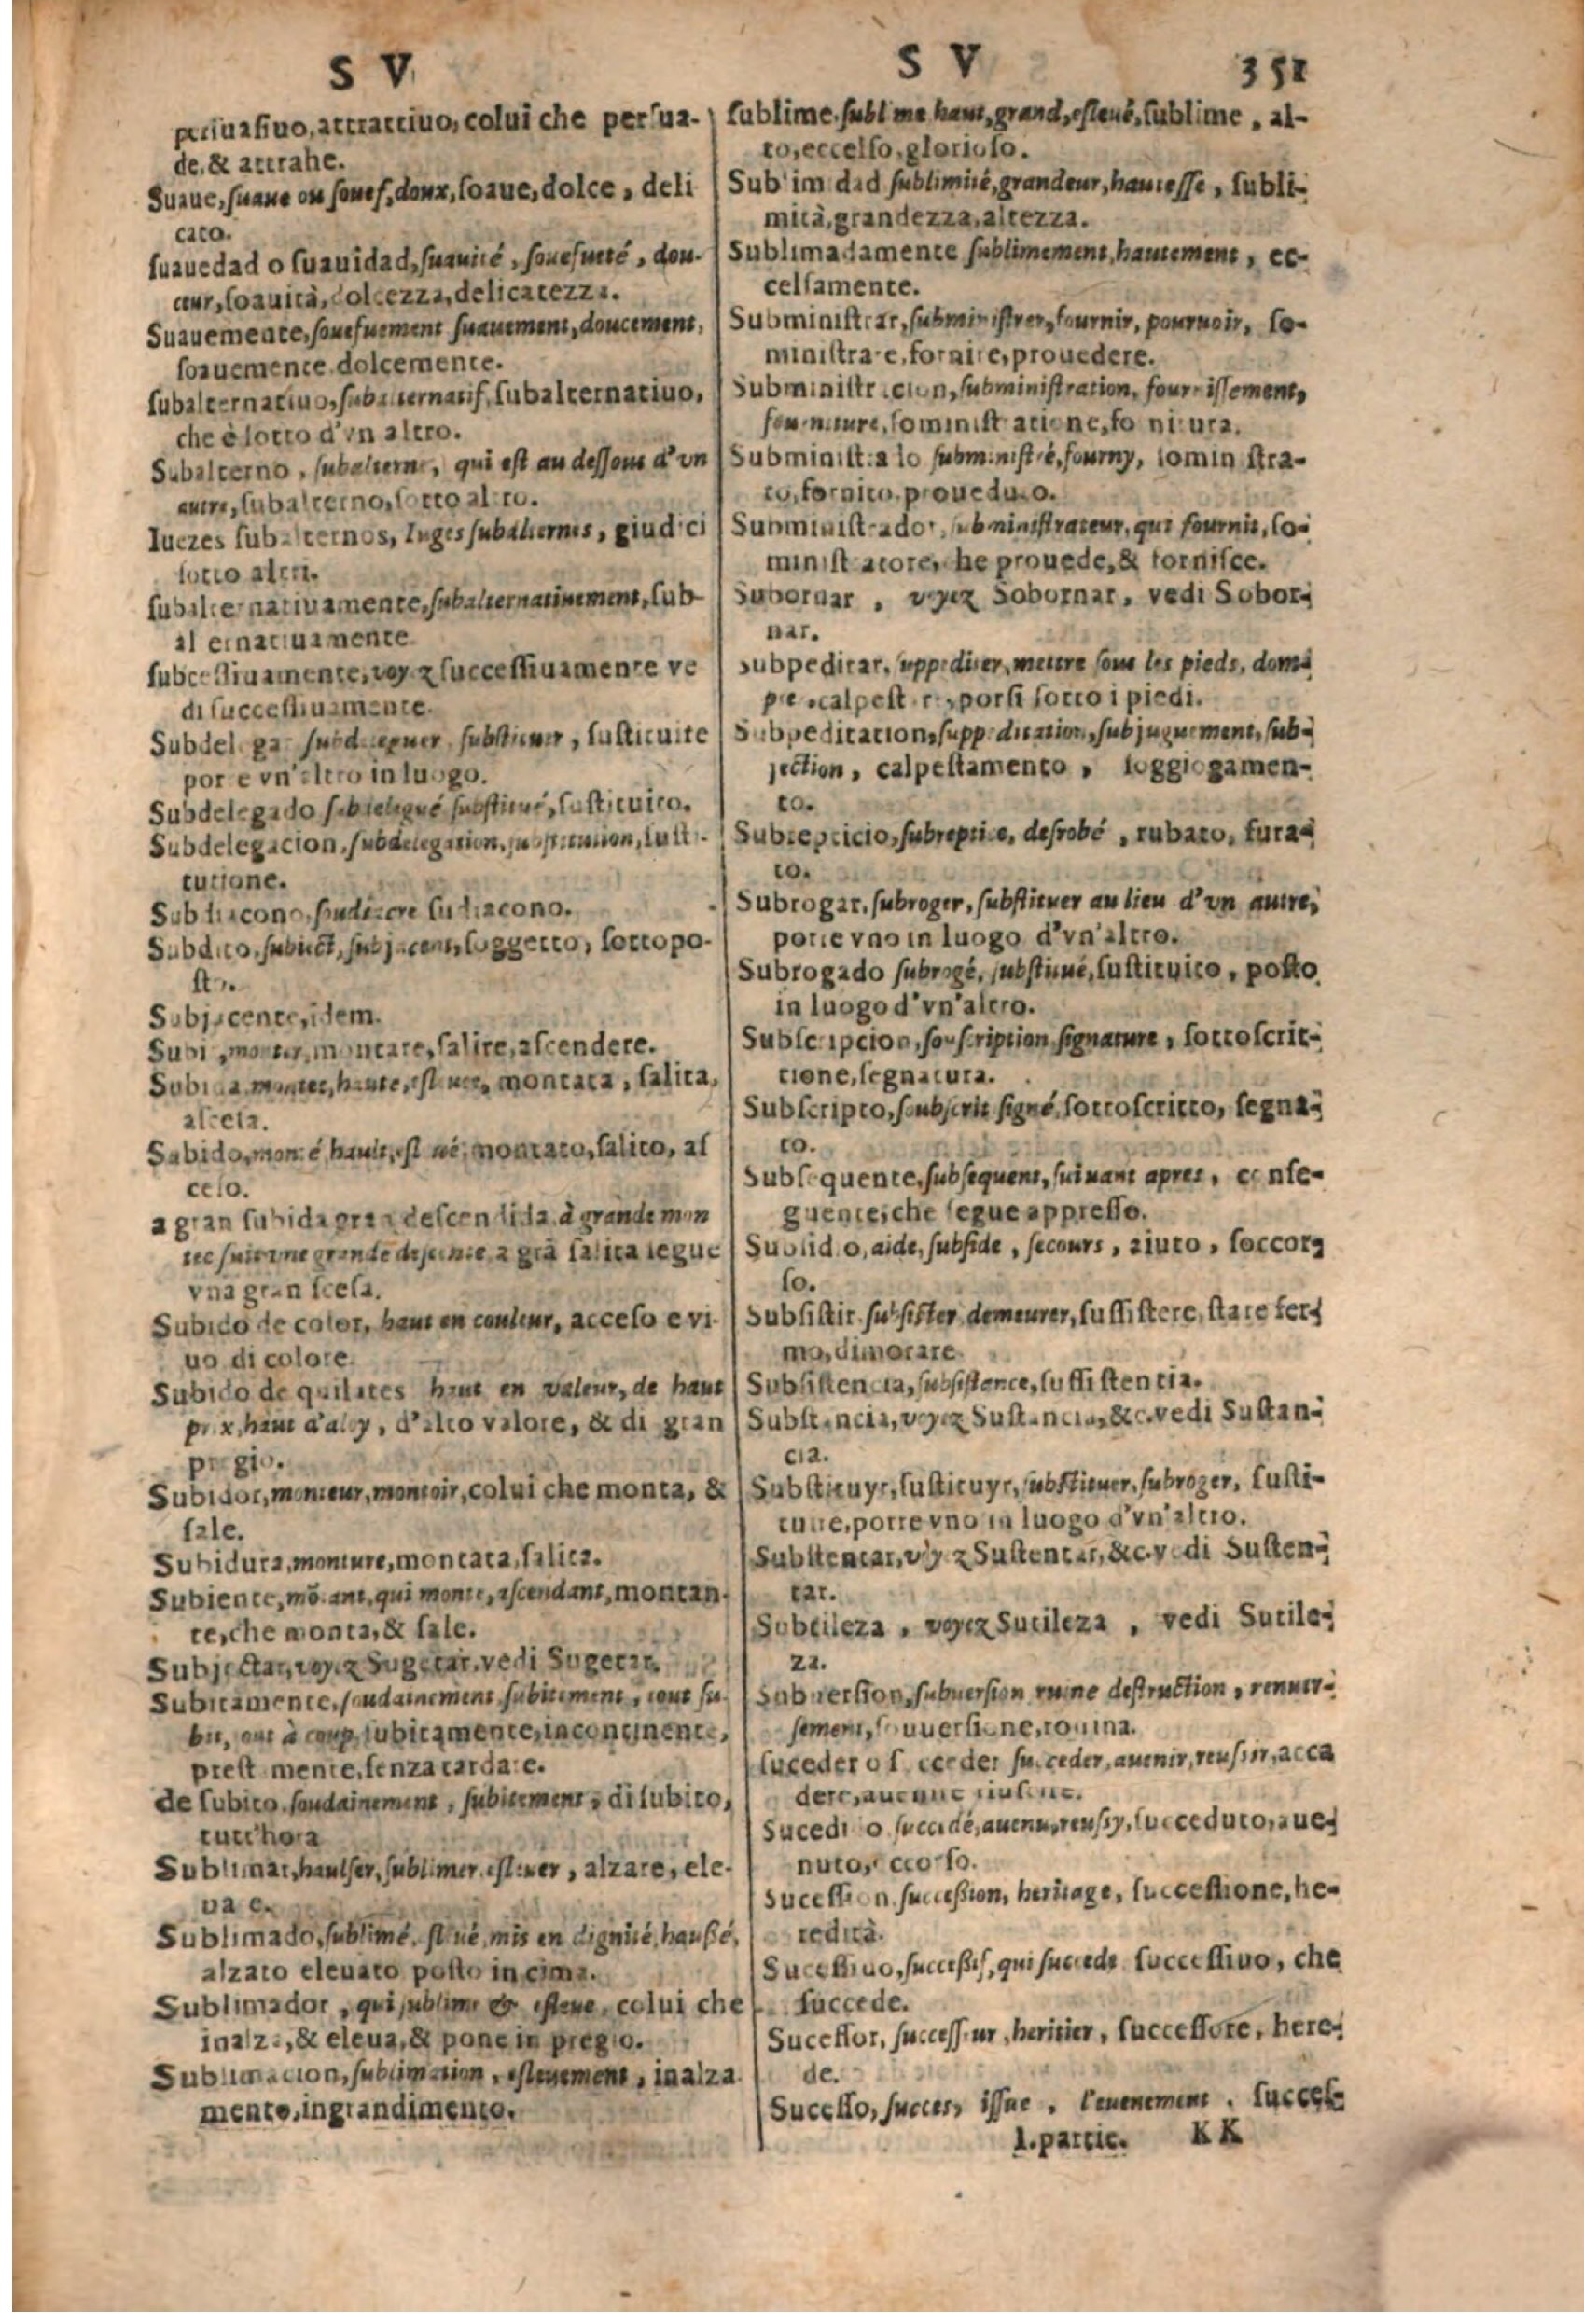 S V
S V
351
persuasiuo, attrattiuo, colui che persua-
de, & attrahe.
Suaue, suaue ou souef, doux, soaue, dolce, deli
cato.
suauedad o suauidad, suauité, souefueté, dou-
ceur, soauità, dolcezza, delicatezza.
Suauemente, souefuement suauement, doucement,
soauemente dolcemente.
subalternatiuo, subalternatif, subalternatiuo,
che è sotto d'vn altro.
Subalterno, subalterne, qui est au dessous d'vn
autre, subalterno, sotto altro.
Iuezes subalternos, Iuges subalternes, giudici
sotto altri.
subalternatiuamente, subalternatiuement, sub-
alternatiuamente
subcessiuamente, voyez successiuamente ve
di successiuamente.
Subdelegar subdeleguer, substituer, sustituire
porre vn'altro in luogo.
Subdelegado subdelegué substitué, sustituito.
Subdelegacion, subdelegation, substitution, susti-
tutione.
Subdiacono, soudiacre sudiacono.
Subdito, subiect, subjacent, soggetto, sottopo-
sto.
Subjacente, idem.
Subir, monter, montare, salire, ascendere.
Subida montee, haute, esleuee, montata, salita,
ascesa.
Subido, monté hault, esleué, montato, salito, as
ceso.
a gran subida gran descendida à grande mon
tee suit vne grande descente a grã salita segue
vna gran scesa.
Subido de color, haut en couleur, acceso e vi-
uo di colore.
Subido de quilates haut en valeur, de haut
prix, haut d'aloy, d'alto valore, & di gran
pregio.
Subidor, monteur, montoir, colui che monta, &
sale.
Subidura, monture, montata, salita.
Subiente, mõtant, qui monte, ascendant, montan-
te, che monta, & sale.
Subjectar, voyez Sugetar, vedi Sugetar.
Subitamente, soudainement subitement, tout su-
bit, tout à coup, subitamente, incontinente,
prestamente, senza tardare.
de subito, soudainement, subitement, di subito,
tutt'hora
Sublimar, haulser, sublimer esleuer, alzare, ele-
uare.
Sublimado, sublimé, esleué, mis en dignité, haussé,
alzato eleuato posto in cima.
Sublimador, qui sublime & esleue, colui che
inalza, & eleua, & pone in pregio.
Sublimacion, sublimation, esleuement, inalza-
mento, ingrandimento.
sublime, sublime haut, grand, esleué, sublime, al-
to, eccelso, glorioso.
Sublimidad sublimité, grandeur, hautesse, subli-
mità, grandezza, altezza.
Sublimadamente sublimement, hautement, ec-
celsamente.
Subministrar, subministrer, fournir, pouruoir, so-
ministrare, fornire, prouedere.
Subministracion, subministration, fournissement,
fourniture, soministratione, fornitura.
Subministrado subministré, fourny, sominstra-
to, fornito, proueduto.
Subministrador, subministrateur, qui fournit, so-
ministratore, che prouede, & fornisce.
Subornar, voyez Sobornar, vedi Sobor-
nar.
subpeditar, suppediter, mettre sous les pieds, dom-
pter, calpestare, porsi sotto i piedi.
Subpeditacion, suppeditation, subjuguement, sub-
jection, calpestamento, soggiogamen-
to.
Subrepticio, subreptice, desrobé, rubato, fura-
to.
Subrogar, subroger, substituer au lieu d'vn autre,
porre vno in luogo d'vn'altro.
Subrogado subrogé, substitué, sustituito, posto
in luogo d'vn'altro.
Subscripcion, souscription signature, sottoscrit-
tione, segnatura.
Subscripto, soubscrit signé, sottoscritto, segna-
to.
Subsequente, subsequent, suiuant apres, conse-
guente, che segue appresso.
Subsidio, aide, subside, secours, aiuto, soccor-
so.
Subsistir, subsister demeurer, sussistere, stare fer-
mo, dimorare.
Subsistencia, subsistence, sussistentia.
Substancia, voyez Sustancia, &c. vedi Sustan-
cia.
Substituyr, sustituyr, substituer, subroger, susti-
tuire, porre vno in luogo d'vn'altro.
Substentar, voyez Sustentar, &c. vedi Susten-
tar.
Subtileza, voyez Sutileza, vedi Sutile-
za.
Subuersion, subuersion ruine destruction, renuer-
sement, souuersione, rouina.
suceder o succeder succeder, auenir, reussir, acca
dere, auenire riuscire.
Sucedido succedé, auenu, reussy, succeduto, aue-
nuto, accorso.
Sucession, succession, heritage, successione, he-
redità.
Sucessiuo, successif, qui succede successiuo, che
succede.
Sucessor, successeur, heritier, successore, here-
de.
Sucesso, succes, issue, l'euenement, succes-
I. partie. KK